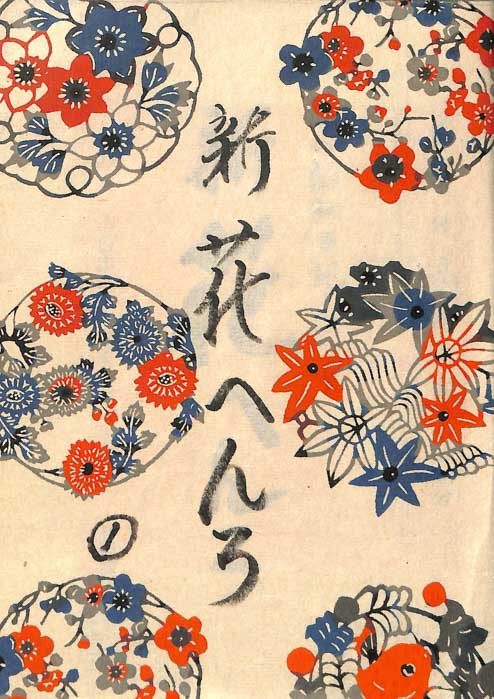 新花へんろ
①